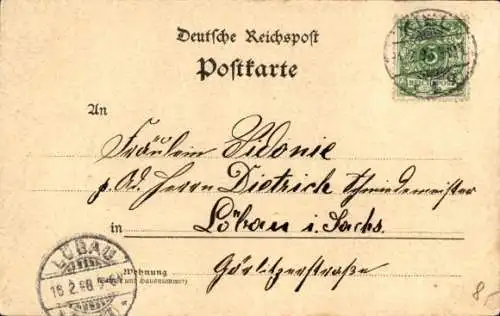 Deutsche Reichspost
Postkarte
5
An
Fräulein Sidonie
p. Ad. Herrn Dietrich Schmiedemeister
in Löbau i. Sachs.
Görlitzerstraße
Wohnung
(Straße und Hausnummer)
LÖBAU
18 2 98
8